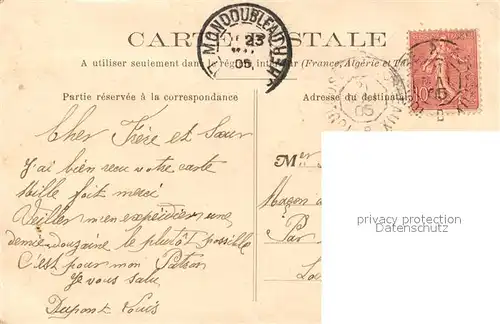 CARTE POSTALE
MONDOUBLEAU
23
05
A utiliser seulement dans le régime intérieur (France, Algérie et
Partie réservée à la correspondance
Adresse du destinat
10
05
Cher Frère et Sœur
J'ai bien reçu votre carte
Mille fait merci
Veiller m'en expédier une
demie douzaine le plutôt possible
C'est pour mon Patron
Je vous salu
Dupont Louis
Mr
Maçon a
Par
privacy protection
Datenschutz